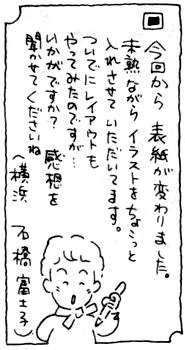 今回から 表紙が変わりました。
未熟ながら イラストをちょこっと
入れさせていただいてます。
ついでにレイアウトも
やってみたのですが…
いかがですか？ 感想を
聞かせてくださいね
（横浜 石橋富士子）